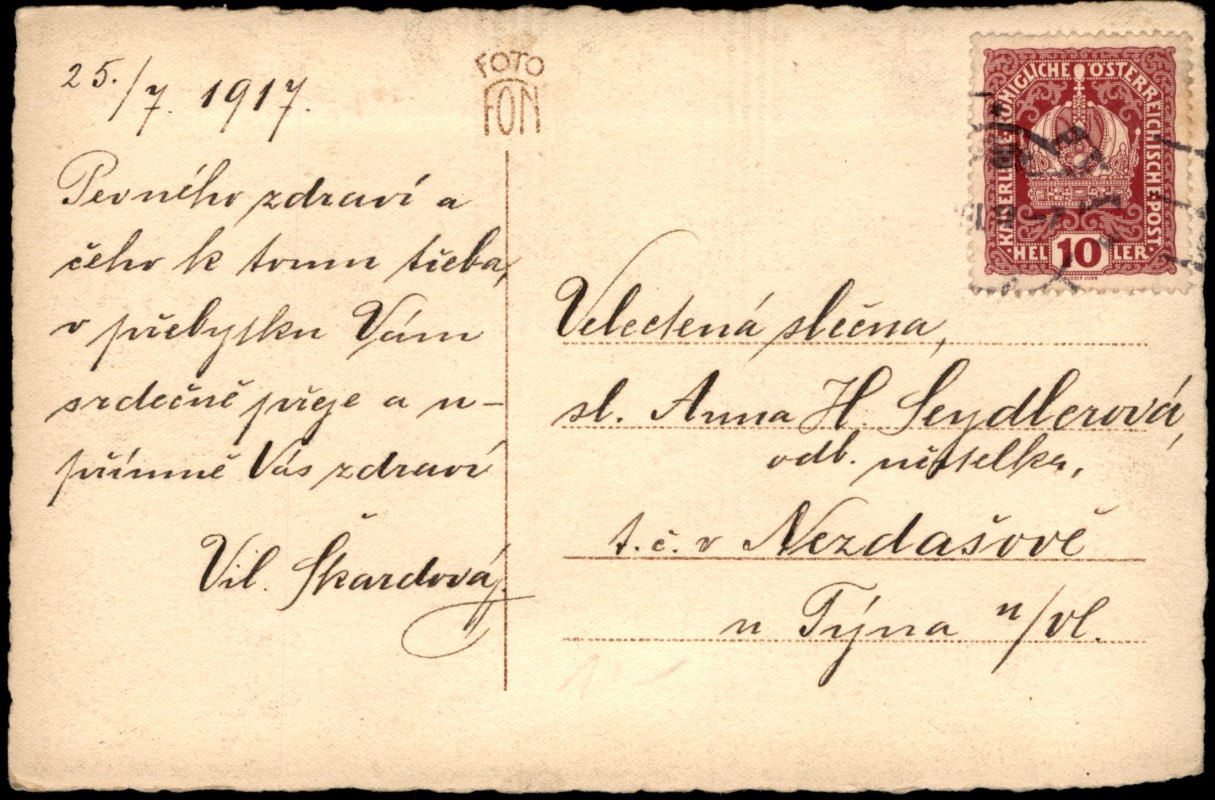 25./7. 1917.
FOTO
FON
Pevného zdraví a
čeho k tomu třeba,
v přebytku Vám
srdečně přeje a u-
přímně Vás zdraví
Vil. Škardová.
KAISERLICHE KÖNIGLICHE ÖSTERREICHISCHE POST
HELLER
10
Velectená slečna,
sl. Anna H. Seydlerová,
odb. učitelka,
t. č. v Nezdašově
u Týna n/Vl.